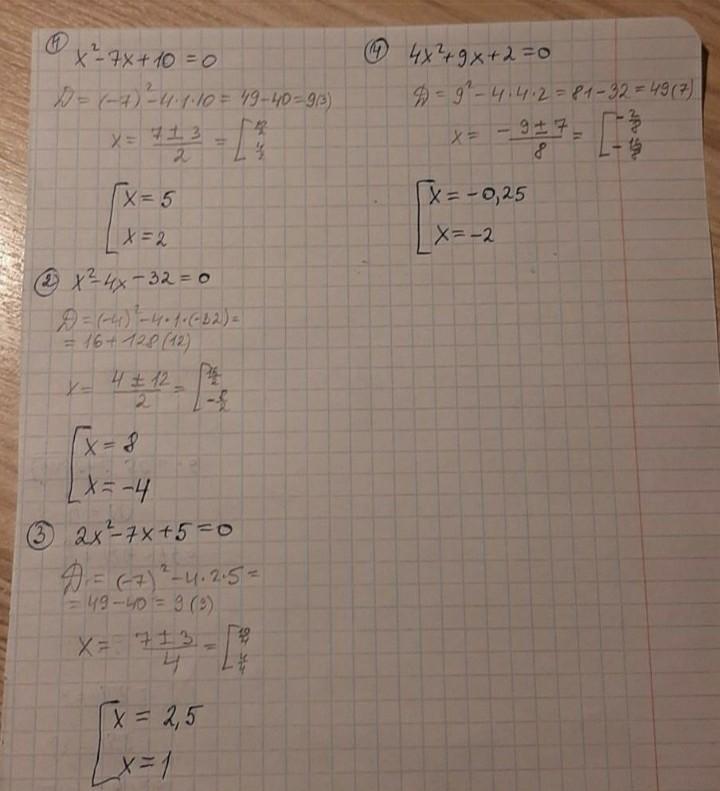 ① x² - 7x + 10 = 0
D = (-7)² - 4·1·10 = 49 - 40 = 9(3)
x = (7 ± 3)/2 = [10/2
4/2
[x = 5
x = 2
② x² - 4x - 32 = 0
D = (-4)² - 4·1·(-32) =
= 16 + 128(12)
x = (4 ± 12)/2 = [16/2
-8/2
[x = 8
x = -4
③ 2x² - 7x + 5 = 0
D = (-7)² - 4·2·5 =
= 49 - 40 = 9(3)
x = (7 ± 3)/4 = [10/4
4/4
[x = 2,5
x = 1
④ 4x² + 9x + 2 = 0
D = 9² - 4·4·2 = 81 - 32 = 49(7)
x = (-9 ± 7)/8 = [-2/8
-16/8
[x = -0,25
x = -2